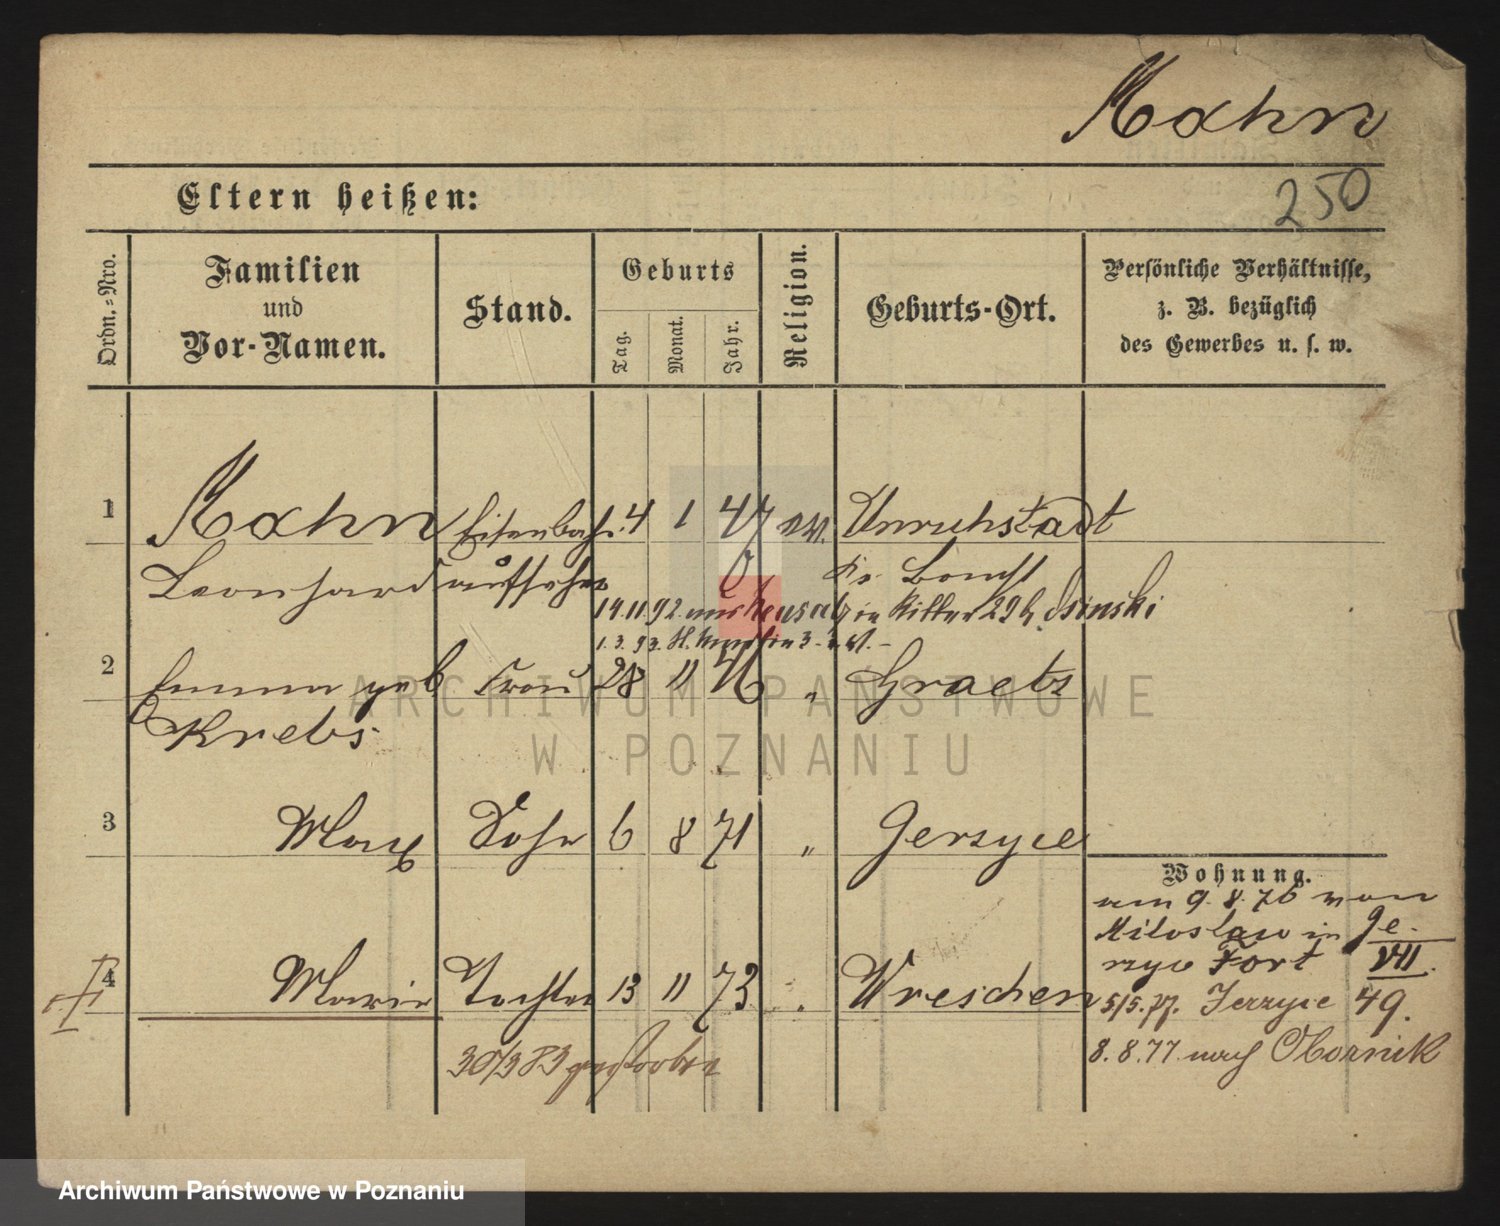 Rahn
250
Eltern heißen:
Ordn.=Nro.
Familien
und
Vor-Namen.
Stand.
Geburts
Tag.
Monat.
Jahr.
Religion.
Geburts-Ort.
Persönliche Verhältnisse,
z. B. bezüglich
des Gewerbes u. s. w.
1 Rahn Eisenbahn 4 1 47 ev. Unruhstadt
Leonhard aufseher Kr. Bomst
14.11.92 aus in Ritter 29 b. Osinski
1.3.93.
2 Emma geb Frau 28 11 46 " Graetz
Krebs
3 Max Sohn 6 8 71 " Gerzyce
Wohnung.
am 9.8.76 von
Miloslaw in Je-
rzyce Fort VII.
4 Marie Tochter 13 11 73 " Wreschen
5/5.77. Jerzyce 49.
8.8.77 nach Obornik
30/3 83 gestorben
ARCHIWUM PAŃSTWOWE
W POZNANIU
Archiwum Państwowe w Poznaniu